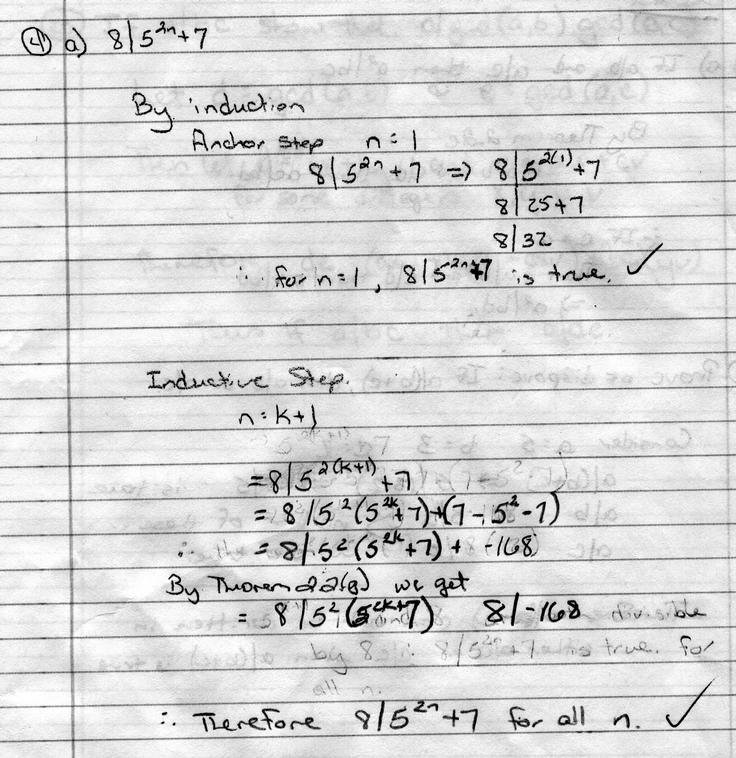 ④ a) 8|5²ⁿ+7
By induction
Anchor Step n=1
8|5²ⁿ+7 => 8|5²⁽¹⁾+7
8|25+7
8|32
∴ for n=1, 8|5²ⁿ+7 is true. ✓
Inductive Step.
n=k+1
=8|5²⁽ᵏ⁺¹⁾+7
=8|5²(5²ᵏ+7)+(7-5²-7)
∴ =8|5²(5²ᵏ+7)+-168
By Theorem 2.2(8) we get
=8|5²(5²ᵏ+7) 8|-168 divisible
by 8 ∴ 8|5²ⁿ+7 is true. for
all n.
∴ Therefore 8|5²ⁿ+7 for all n. ✓